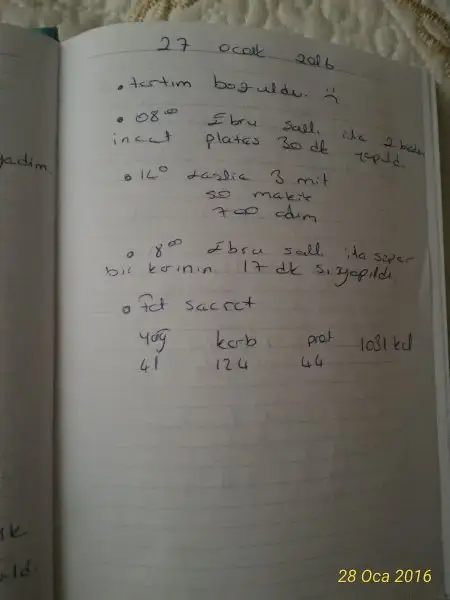 27 ocak 2016
• tartım bozuldu. :(
• 08⁰⁰ Ebru Şallı ile
incat plates 30 dk yapıldı.
yadım.
3 mit
50 makik
700 adım
• 8⁰⁰ Ebru şallı ile süper
bir karının 17 dk sı yapıldı
• Fat sacret
yağ karb. prot 1031 kcl
41 124 44
28 Oca 2016